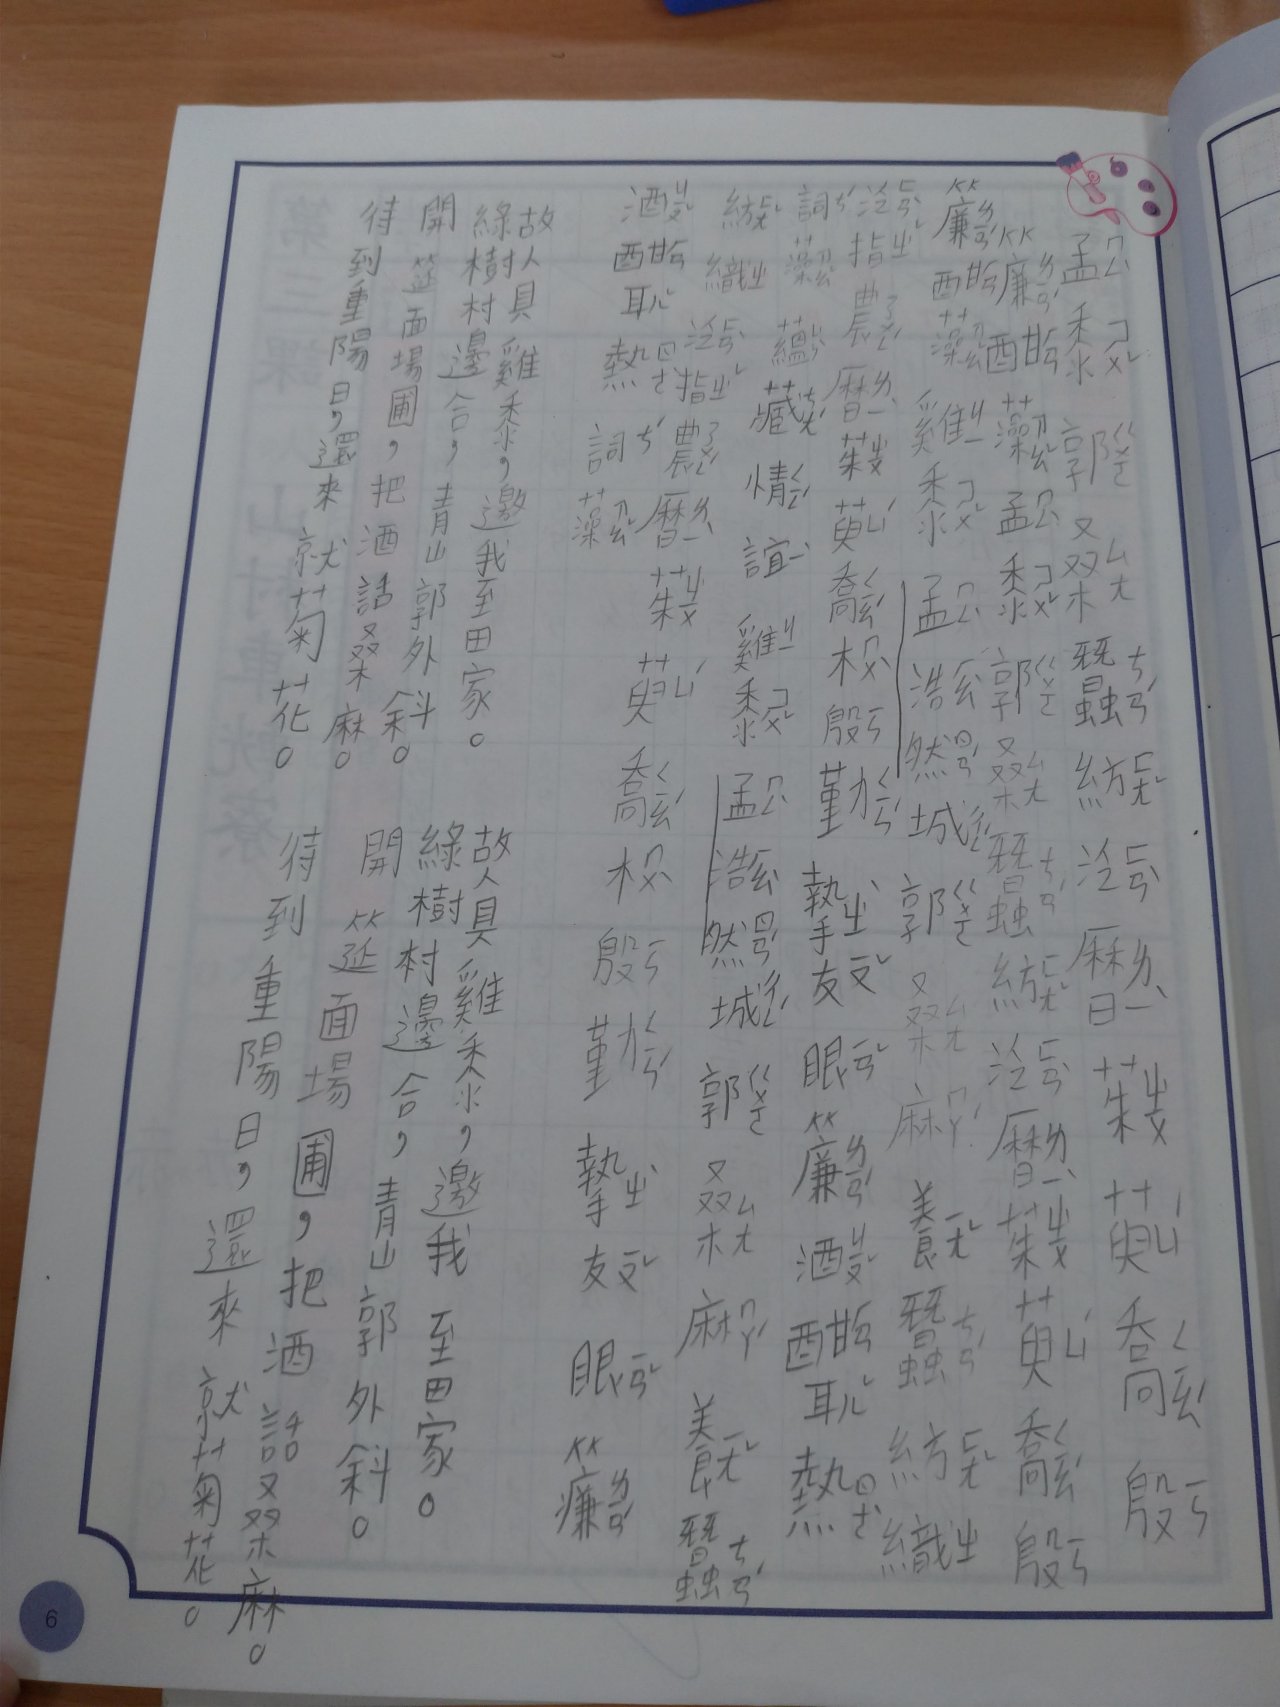 孟ㄇㄥˋ黍ㄕㄨˇ郭ㄍㄨㄛ桑ㄙㄤ蠶ㄘㄢˊ紡ㄈㄤˇ泛ㄈㄢˋ曆ㄌㄧˋ茱ㄓㄨ萸ㄩˊ喬ㄑㄧㄠˊ殷ㄧㄣ
簾ㄌㄧㄢˊ酣ㄏㄢ藻ㄗㄠˇ孟ㄇㄥˋ黍ㄕㄨˇ郭ㄍㄨㄛ桑ㄙㄤ蠶ㄘㄢˊ紡ㄈㄤˇ泛ㄈㄢˋ曆ㄌㄧˋ茱ㄓㄨ萸ㄩˊ喬ㄑㄧㄠˊ殷ㄧㄣ
簾ㄌㄧㄢˊ酣ㄏㄢ藻ㄗㄠˇ雞ㄐㄧ黍ㄕㄨˇ孟ㄇㄥˋ浩ㄏㄠˋ然ㄖㄢˊ城ㄔㄥˊ郭ㄍㄨㄛ桑ㄙㄤ麻ㄇㄚˊ養ㄧㄤˇ蠶ㄘㄢˊ紡ㄈㄤˇ織ㄓ
泛ㄈㄢˋ指ㄓˇ農ㄋㄨㄥˊ曆ㄌㄧˋ茱ㄓㄨ萸ㄩˊ喬ㄑㄧㄠˊ木ㄇㄨˋ殷ㄧㄣ勤ㄑㄧㄣˊ摯ㄓˋ友ㄧㄡˇ眼ㄧㄢˇ簾ㄌㄧㄢˊ酒ㄐㄧㄡˇ酣ㄏㄢ耳ㄦˇ熱ㄖㄜˋ
詞ㄘˊ藻ㄗㄠˇ蘊ㄩㄣˋ藏ㄘㄤˊ情ㄑㄧㄥˊ誼ㄧˋ雞ㄐㄧ黍ㄕㄨˇ孟ㄇㄥˋ浩ㄏㄠˋ然ㄖㄢˊ城ㄔㄥˊ郭ㄍㄨㄛ桑ㄙㄤ麻ㄇㄚˊ養ㄧㄤˇ蠶ㄘㄢˊ
紡ㄈㄤˇ織ㄓ泛ㄈㄢˋ指ㄓˇ農ㄋㄨㄥˊ曆ㄌㄧˋ茱ㄓㄨ萸ㄩˊ喬ㄑㄧㄠˊ木ㄇㄨˋ殷ㄧㄣ勤ㄑㄧㄣˊ摯ㄓˋ友ㄧㄡˇ眼ㄧㄢˇ簾ㄌㄧㄢˊ
酒ㄐㄧㄡˇ酣ㄏㄢ耳ㄦˇ熱ㄖㄜˋ詞ㄘˊ藻ㄗㄠˇ
故人具雞黍，邀我至田家。
綠樹村邊合，青山郭外斜。
開筵面場圃，把酒話桑麻。
待到重陽日，還來就菊花。
故人具雞黍，邀我至田家。
綠樹村邊合，青山郭外斜。
開筵面場圃，把酒話桑麻。
待到重陽日，還來就菊花。
6